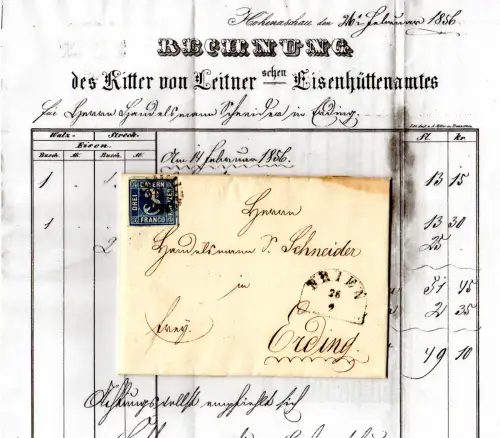 Hohenaschau den 26t. Februar 1856.
RECHNUNG
des Ritter von Leitner schen Eisenhüttenamtes
für Herrn Handelsmann Schneider in Erding.
Walz- Streck-
Eisen.
Burch. ℔. Burch. ℔. Fl. kr.
Am 14 Februar 1856.
1 1 13 15
1 13 30
2 25
51 45
2 35
49 10
BAYERN
DREI
3
KREUZER
FRANCO
Herrn
Handelsmann S. Schneider
in
frey.
Erding.
PRIEN
26
2
Achtungsvollst empfiehlt sich